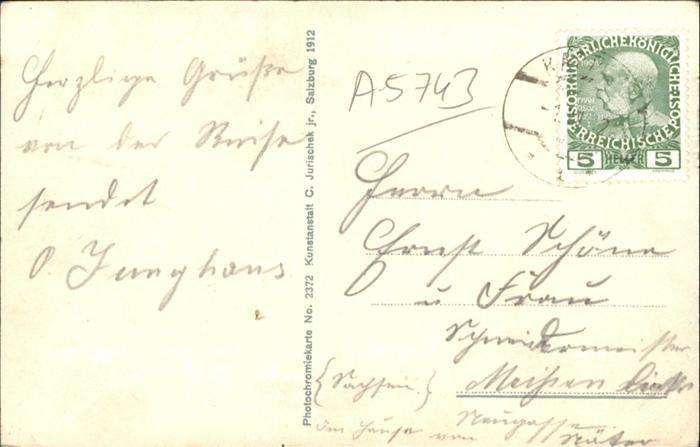 Herzliche Grüße
von der Reise
sendet
O. Junghans
Photochromiekarte No. 2372 Kunstanstalt C. Jurischek jr., Salzburg 1912
A5743
KAISERLICHE KÖNIGLICHE ÖSTERREICHISCHE
5 HELLER 5
Herrn
Ernst Schöne
u Frau
Schneidermeister
(Sachsen.) Meißen
Im Hause von Neugasse